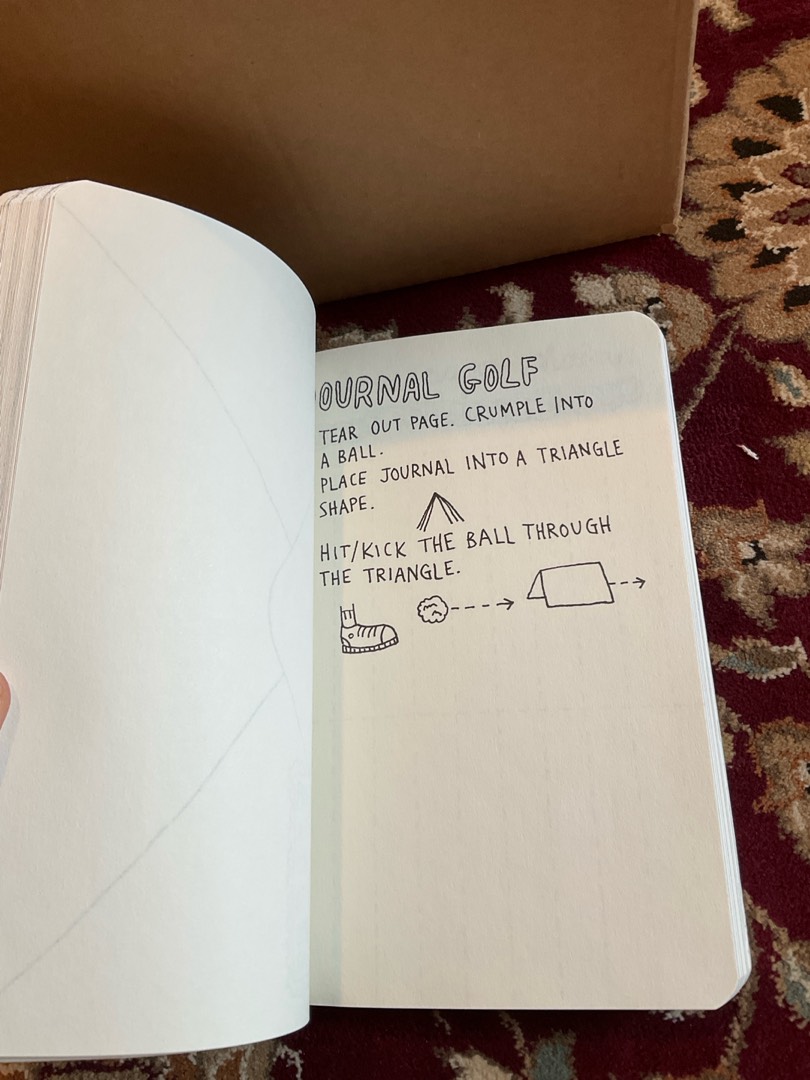 JOURNAL GOLF
TEAR OUT PAGE. CRUMPLE INTO
A BALL.
PLACE JOURNAL INTO A TRIANGLE
SHAPE.
HIT/KICK THE BALL THROUGH
THE TRIANGLE.